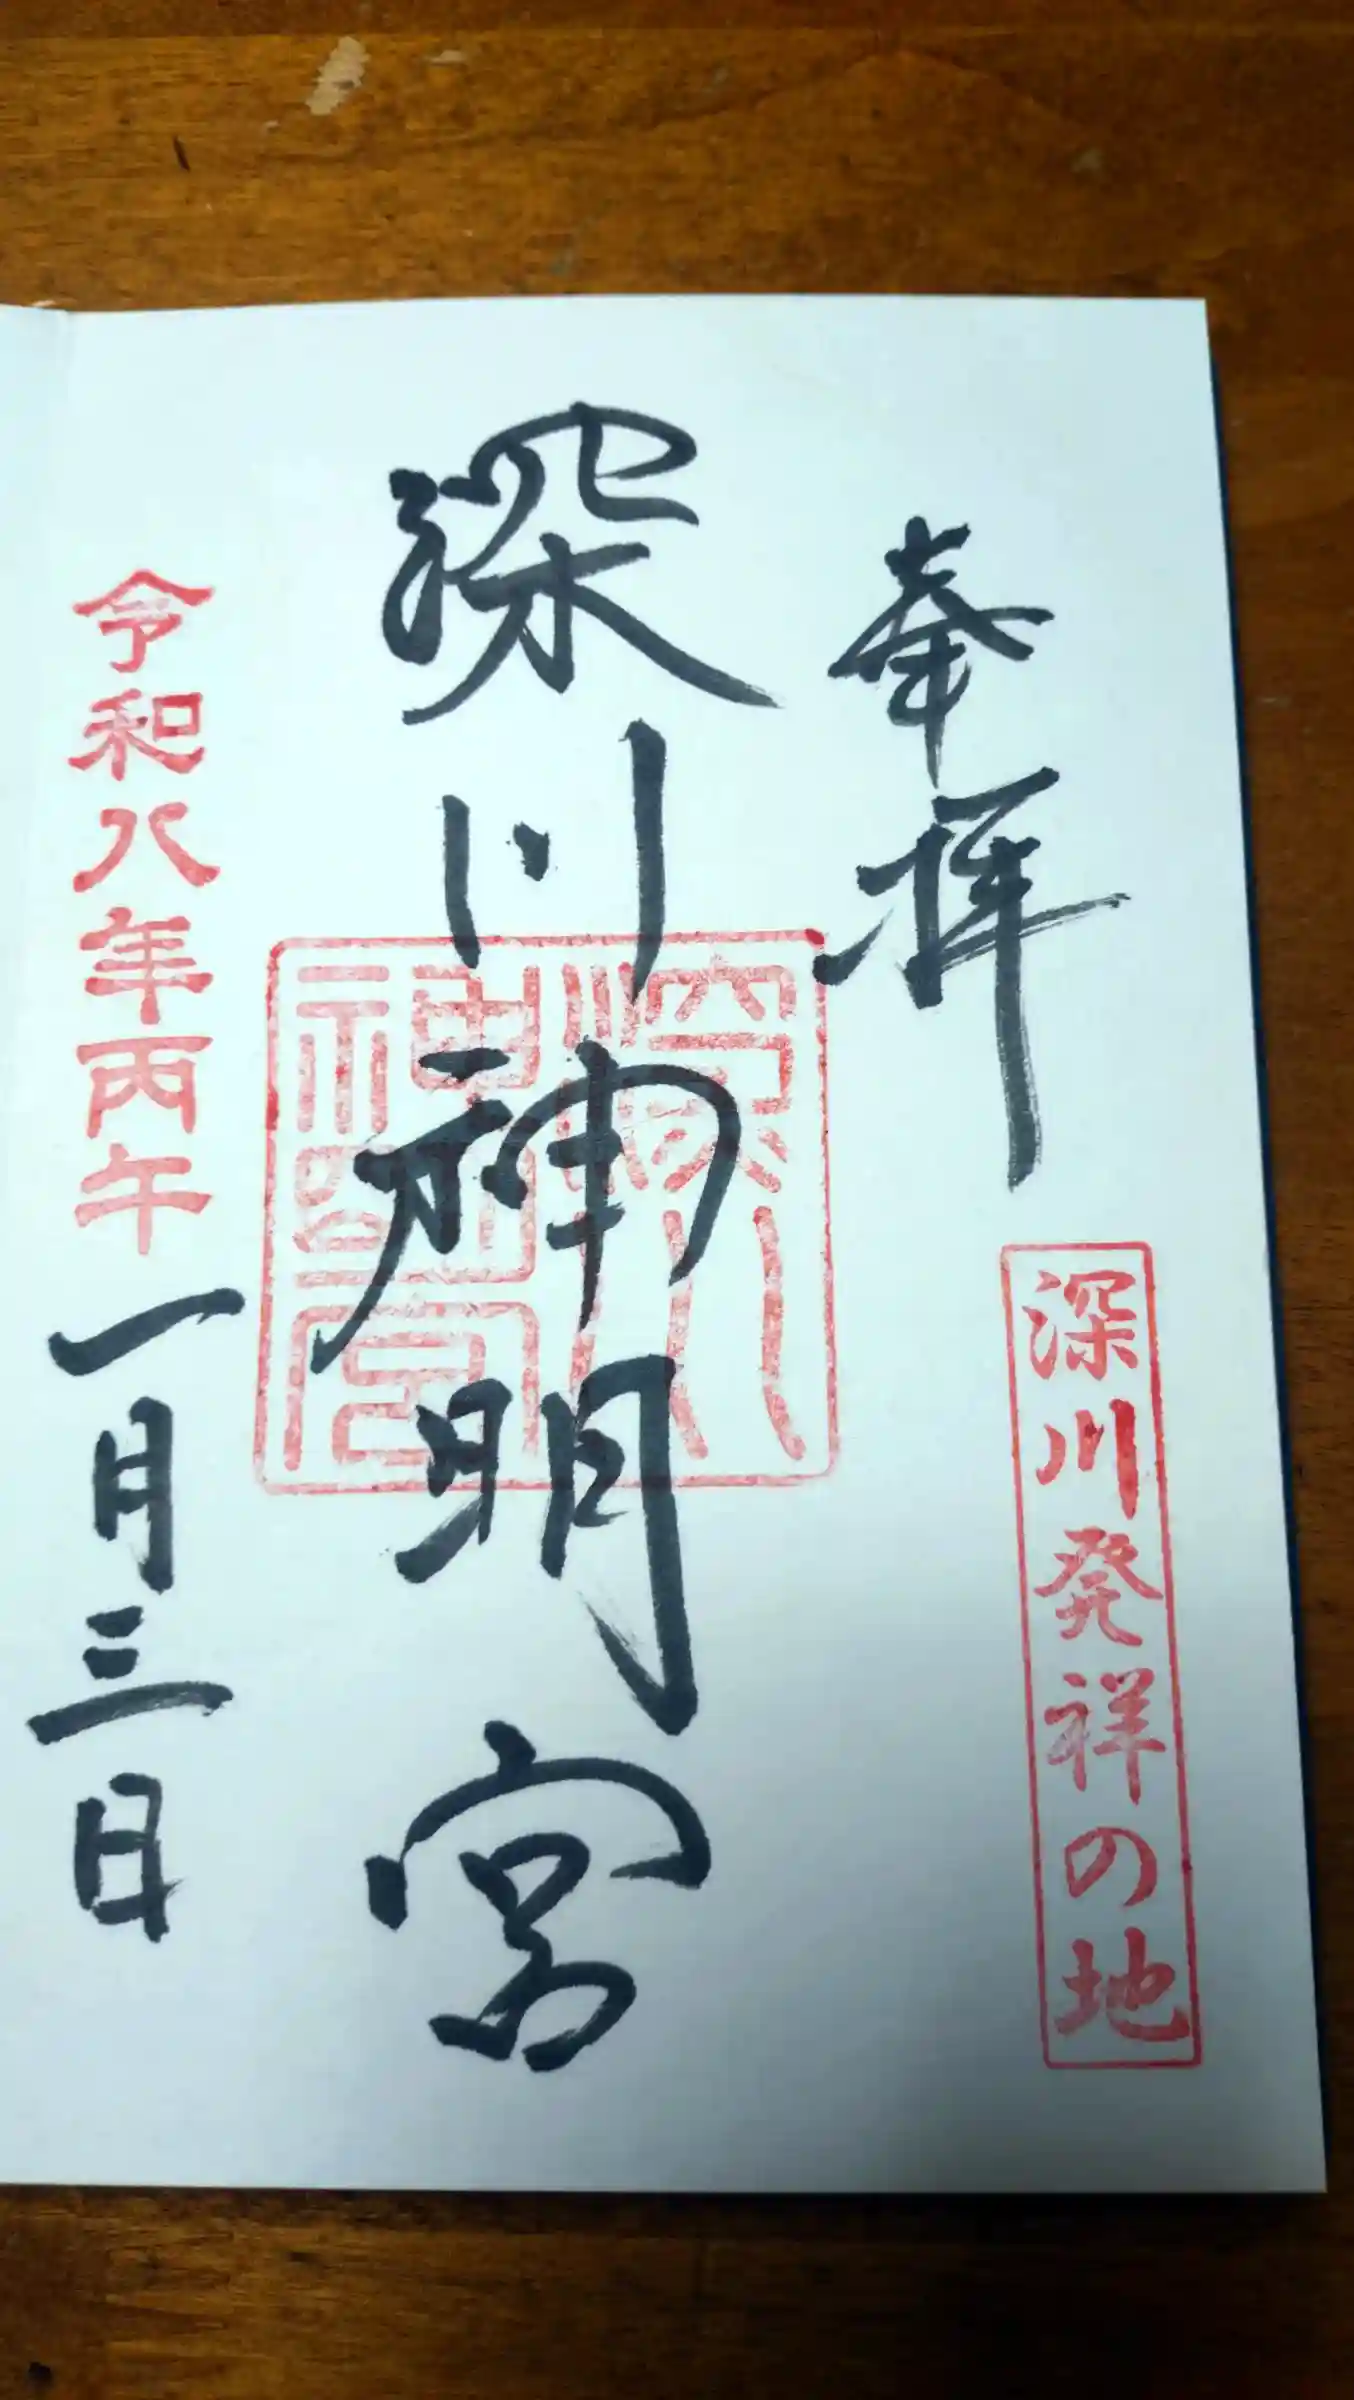 奉拝
深川発祥の地
深川神明宮
深川
神明宮
令和八年丙午
一月三日